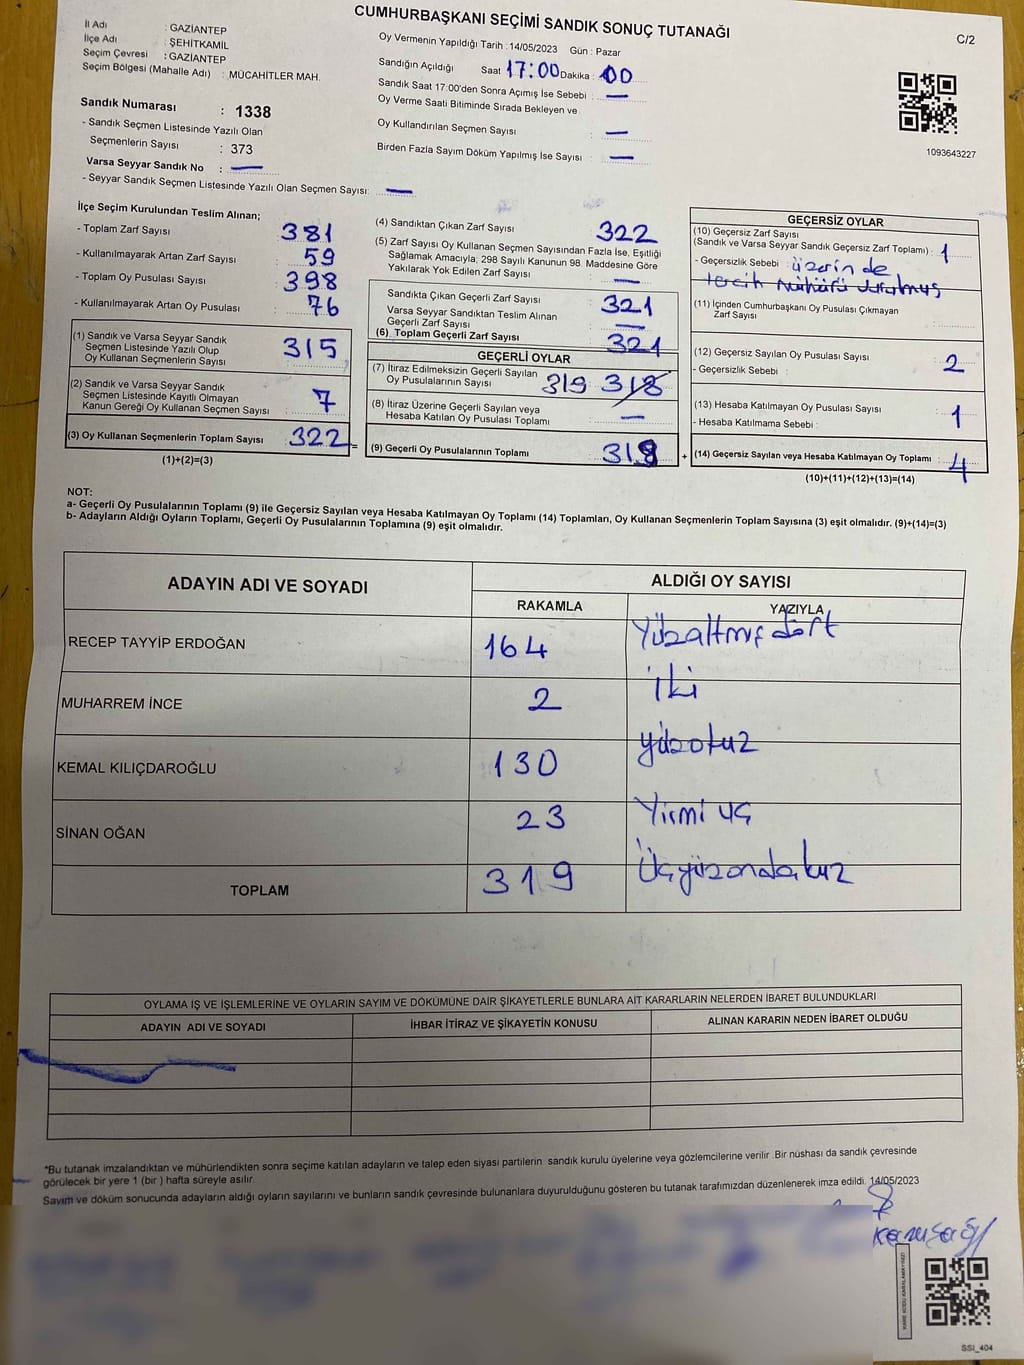 CUMHURBAŞKANI SEÇİMİ SANDIK SONUÇ TUTANAĞI
C/2
İl Adı : GAZİANTEP
İlçe Adı : ŞEHİTKAMİL
Seçim Çevresi : GAZİANTEP
Seçim Bölgesi (Mahalle Adı) : MÜCAHİTLER MAH.
Sandık Numarası : 1338
- Sandık Seçmen Listesinde Yazılı Olan
Seçmenlerin Sayısı : 373
Varsa Seyyar Sandık No : —
- Seyyar Sandık Seçmen Listesinde Yazılı Olan Seçmen Sayısı: —
Oy Vermenin Yapıldığı Tarih : 14/05/2023 Gün : Pazar
Sandığın Açıldığı Saat 17:00 Dakika : 00
Sandık Saat 17:00'den Sonra Açımış İse Sebebi : —
Oy Verme Saati Bitiminde Sırada Bekleyen ve
Oy Kullandırılan Seçmen Sayısı : —
Birden Fazla Sayım Döküm Yapılmış İse Sayısı : —
1093643227
İlçe Seçim Kurulundan Teslim Alınan;
- Toplam Zarf Sayısı 381
- Kullanılmayarak Artan Zarf Sayısı 59
- Toplam Oy Pusulası Sayısı 398
- Kullanılmayarak Artan Oy Pusulası 76
(1) Sandık ve Varsa Seyyar Sandık
Seçmen Listesinde Yazılı Olup
Oy Kullanan Seçmenlerin Sayısı 315
(2) Sandık ve Varsa Seyyar Sandık
Seçmen Listesinde Kayıtlı Olmayan
Kanun Gereği Oy Kullanan Seçmen Sayısı 7
(3) Oy Kullanan Seçmenlerin Toplam Sayısı 322 =
(1)+(2)=(3)
(4) Sandıktan Çıkan Zarf Sayısı 322
(5) Zarf Sayısı Oy Kullanan Seçmen Sayısından Fazla İse, Eşitliği
Sağlamak Amacıyla; 298 Sayılı Kanunun 98. Maddesine Göre
Yakılarak Yok Edilen Zarf Sayısı : —
Sandıkta Çıkan Geçerli Zarf Sayısı 321
Varsa Seyyar Sandıktan Teslim Alınan
Geçerli Zarf Sayısı —
(6) Toplam Geçerli Zarf Sayısı 321
GEÇERLİ OYLAR
(7) İtiraz Edilmeksizin Geçerli Sayılan
Oy Pusulalarının Sayısı 319 318
(8) İtiraz Üzerine Geçerli Sayılan veya
Hesaba Katılan Oy Pusulası Toplamı —
(9) Geçerli Oy Pusulalarının Toplamı +
GEÇERSİZ OYLAR
(10) Geçersiz Zarf Sayısı
(Sandık ve Varsa Seyyar Sandık Geçersiz Zarf Toplamı) : 1
- Geçersizlik Sebebi : üzerinde
tercih mührü vurulmuş
(11) İçinden Cumhurbaşkanı Oy Pusulası Çıkmayan
Zarf Sayısı
(12) Geçersiz Sayılan Oy Pusulası Sayısı 2
- Geçersizlik Sebebi :
(13) Hesaba Katılmayan Oy Pusulası Sayısı 1
- Hesaba Katılmama Sebebi :
(14) Geçersiz Sayılan veya Hesaba Katılmayan Oy Toplamı : 4
(10)+(11)+(12)+(13)=(14)
NOT:
a- Geçerli Oy Pusulalarının Toplamı (9) ile Geçersiz Sayılan veya Hesaba Katılmayan Oy Toplamı (14) Toplamları, Oy Kullanan Seçmenlerin Toplam Sayısına (3) eşit olmalıdır. (9)+(14)=(3)
b- Adayların Aldığı Oyların Toplamı, Geçerli Oy Pusulalarının Toplamına (9) eşit olmalıdır.
ADAYIN ADI VE SOYADI ALDIĞI OY SAYISI
RAKAMLA YAZIYLA
RECEP TAYYİP ERDOĞAN 164 Yüzaltmış dört
MUHARREM İNCE 2 iki
KEMAL KILIÇDAROĞLU 130 yüzotuz
SİNAN OĞAN 23 Yirmi üç
TOPLAM 319 Üçyüzondokuz
OYLAMA İŞ VE İŞLEMLERİNE VE OYLARIN SAYIM VE DÖKÜMÜNE DAİR ŞİKAYETLERLE BUNLARA AİT KARARLARIN NELERDEN İBARET BULUNDUKLARI
ADAYIN ADI VE SOYADI İHBAR İTİRAZ VE ŞİKAYETİN KONUSU ALINAN KARARIN NEDEN İBARET OLDUĞU
*Bu tutanak imzalandıktan ve mühürlendikten sonra seçime katılan adayların ve talep eden siyasi partilerin sandık kurulu üyelerine veya gözlemcilerine verilir .Bir nüshası da sandık çevresinde
görülecek bir yere 1 (bir ) hafta süreyle asılır.
Sayım ve döküm sonucunda adayların aldığı oyların sayılarını ve bunların sandık çevresinde bulunanlara duyurulduğunu gösteren bu tutanak tarafımızdan düzenlenerek imza edildi. 14/05/2023
KARE KODU KARALAMAYINIZ!
SSI_404